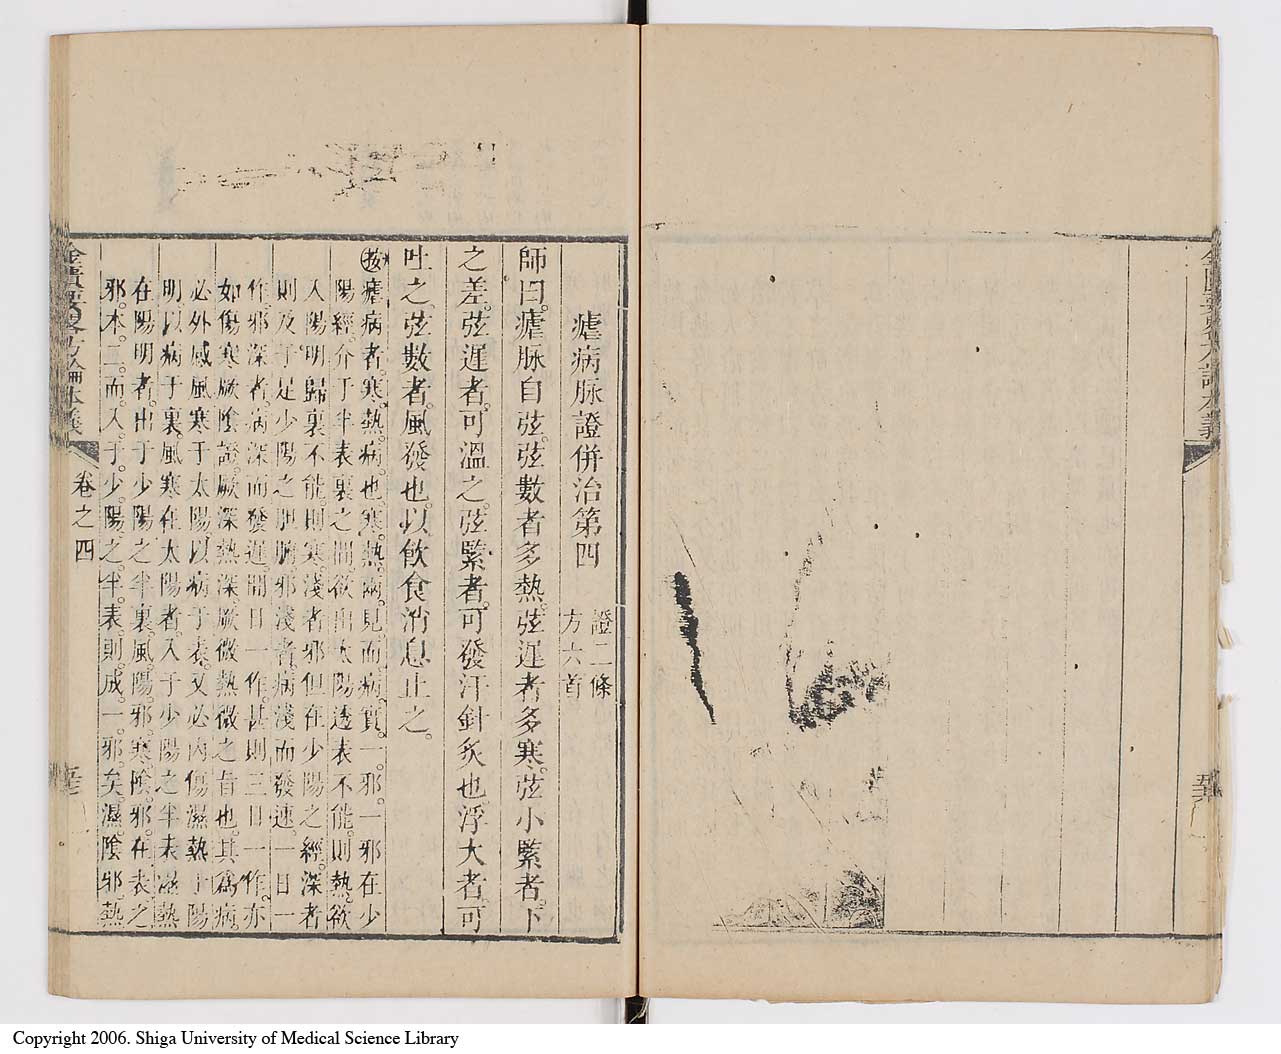 瘧病脉證併治第四
證二條
方六首
師曰。瘧脉自弦。弦數者多熱。弦遲者多寒。弦小緊者。下
之差。弦遲者。可溫之。弦緊者。可發汗針灸也。浮大者。可
吐之。弦數者。風發也。以飲食消息止之。
按瘧病者。寒熱病也。寒熱兩見而病實一邪。一邪在少
陽經。介于半表裏之間。欲出太陽透表不能。則熱。欲
入陽明歸裏不能。則寒。淺者邪但在少陽之經。深者
則及于足少陽之胆腑。邪淺者。病淺而發速。一日一
作。邪深者。病深而發遲。間日一作。甚則三日一作。亦
如傷寒厥陰證。厥深熱深厥微熱微之旨也。其為病。
必外感風寒于太陽。以病于表。又必內傷濕熱于陽
明。以病于裏。風寒在太陽者。入于少陽之半表。濕熱
在陽明者。出于少陽之半裏。風陽邪。寒陰邪。在表之
邪。本二。而入于少陽之半表。則成一邪矣。濕陰邪。熱
金匱要畧方論本義
卷之四
Copyright 2006. Shiga University of Medical Science Library